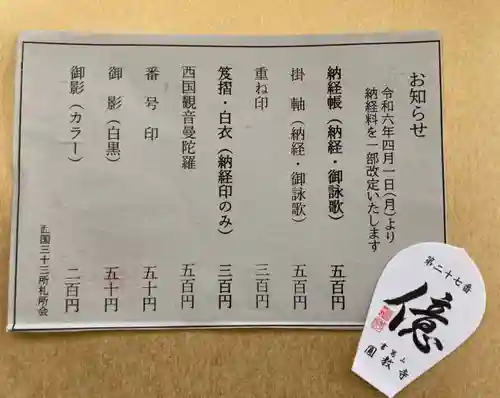 お知らせ
令和六年四月一日(月)より
納経料を一部改定いたします
納経帳(納経・御詠歌) 五百円
掛軸(納経・御詠歌) 五百円
重ね印 三百円
笈摺・白衣(納経印のみ) 三百円
西国観音曼陀羅 五百円
番号印 五十円
御影(白黒) 五十円
御影(カラー) 二百円
西国三十三所札所会
第二十七番
億
書寫山
圓教寺